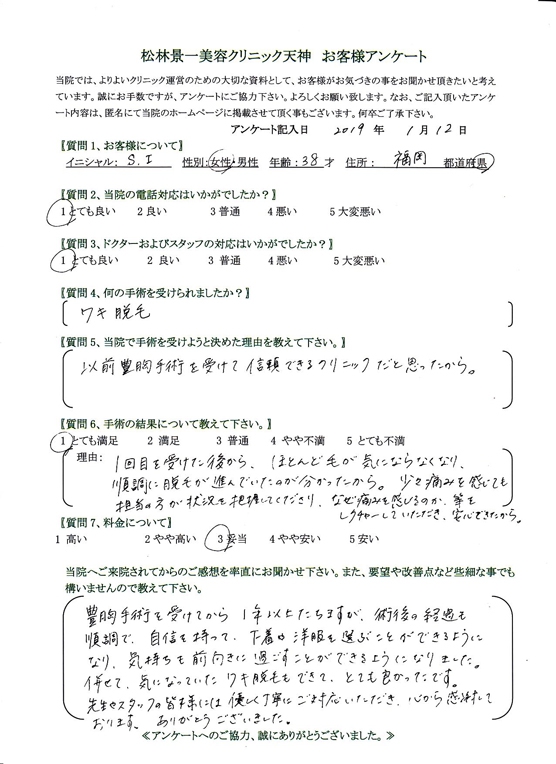 松林景一美容クリニック天神　お客様アンケート
当院では、よりよいクリニック運営のための大切な資料として、お客様がお気づきの事をお聞かせ頂きたいと考え
ています。誠にお手数ですが、アンケートにご協力下さい。よろしくお願い致します。なお、ご記入頂いたアンケ
ート内容は、匿名にて当院のホームページに掲載させて頂く事もございます。何卒ご了承下さい。
アンケート記入日　2019 年　1 月 12 日
〖質問1、お客様について〗
イニシャル： S. I　性別：女性・男性　年齢：38 才　住所：　福岡　都道府県
〖質問2、当院の電話対応はいかがでしたか？〗
1 とても良い　2 良い　3 普通　4 悪い　5 大変悪い
〖質問3、ドクターおよびスタッフの対応はいかがでしたか？〗
1 とても良い　2 良い　3 普通　4 悪い　5 大変悪い
〖質問4、何の手術を受けられましたか？〗
ワキ脱毛
〖質問5、当院で手術を受けようと決めた理由を教えて下さい。〗
以前豊胸手術を受けて信頼できるクリニックだと思ったから。
〖質問6、手術の結果について教えて下さい。〗
1 とても満足　2 満足　3 普通　4 やや不満　5 とても不満
理由：　1回目を受けた後から、ほとんど毛が気にならなくなり、
順調に脱毛が進んでいたのが分かったから。少々痛みを感じても
担当の方が状況を把握してくださり、なぜ痛みを感じるのか、等を
レクチャーしていただき、安心できたから。
〖質問7、料金について〗
1 高い　2 やや高い　3 妥当　4 やや安い　5 安い
当院へご来院されてからのご感想を率直にお聞かせ下さい。また、要望や改善点など些細な事でも
構いませんので教えて下さい。
豊胸手術を受けてから1年以上たちますが、術後の経過も
順調で、自信を持って、下着や洋服を選ぶことができるように
なり、気持ちも前向きに過ごすことができるようになりました。
併せて、気になっていたワキ脱毛もできて、とても良かったです。
先生やスタッフの皆様には優しく丁寧にご対応いただき、心から感謝して
おります。ありがとうございました。
≪アンケートへのご協力、誠にありがとうございました。≫